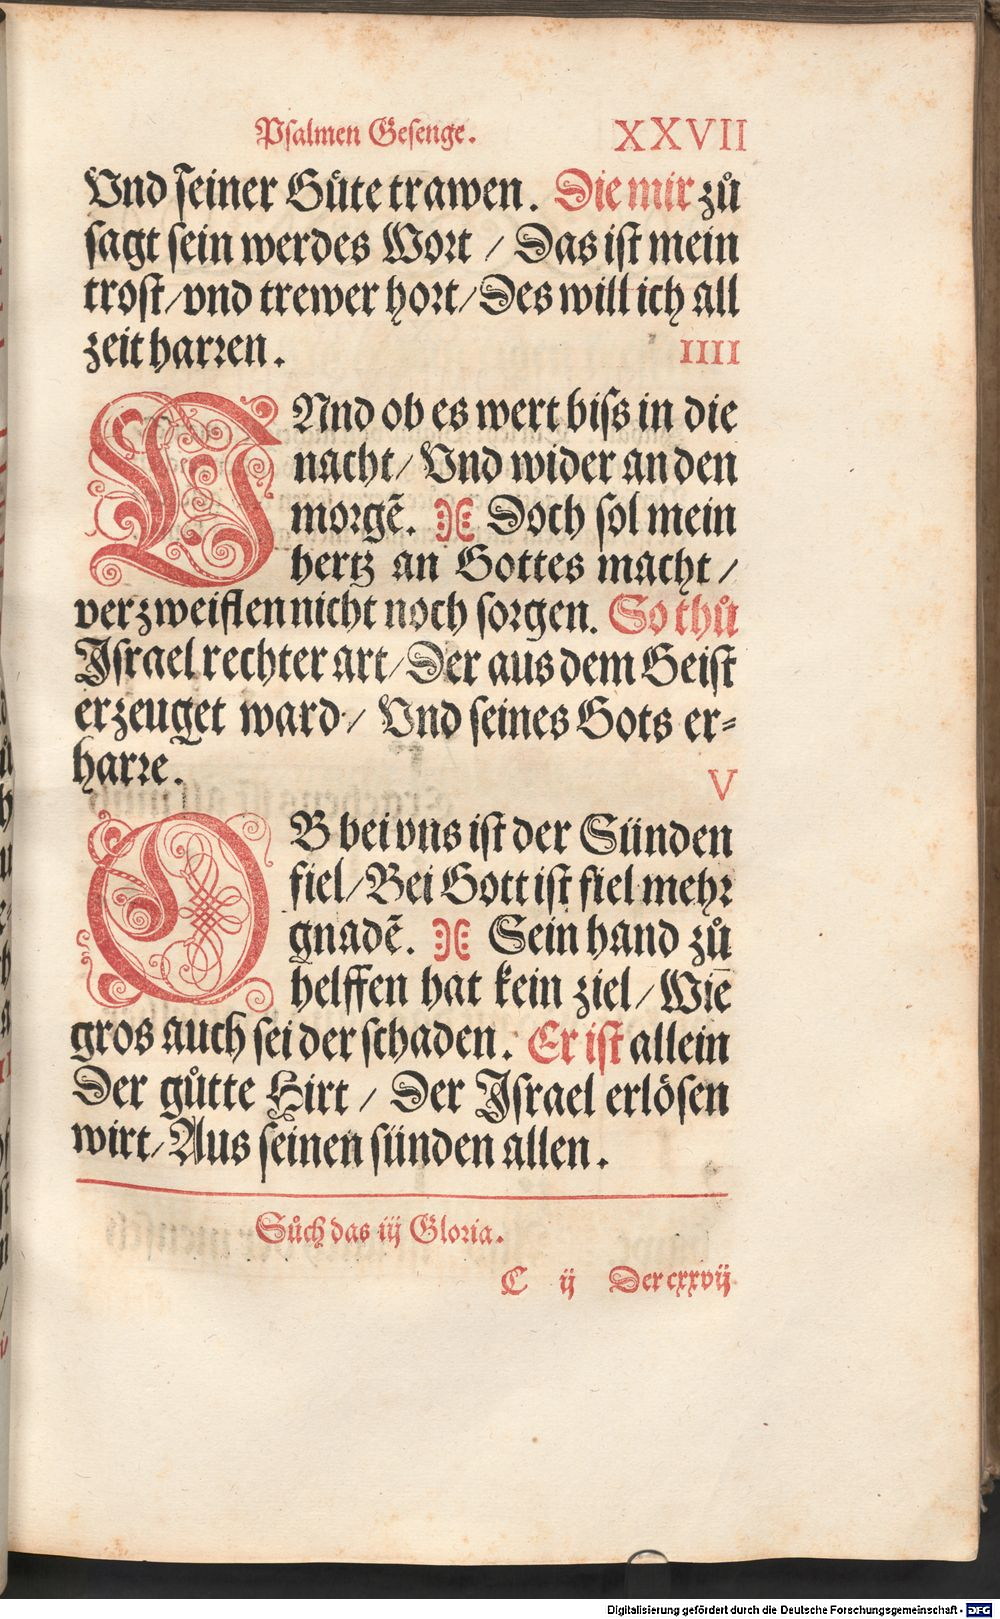 Psalmen Gesenge. XXVII
Vnd seiner Gůte trawen. Die mir zů
sagt sein werdes Wort / Das ist mein
trost / vnd trewer hort / Des will ich all
zeit harren. IIII
VNnd ob es wert biss in die
nacht / Vnd wider an den
morgẽ. Doch sol mein
hertz an Gottes macht /
verzweiflen nicht noch sorgen. So thů
Israel rechter art / Der aus dem Geist
erzeuget ward / Vnd seines Gots er⸗
harre. V
OB bei vns ist der Sünden
fiel / Bei Gott ist fiel mehr
gnadẽ. Sein hand zů
helffen hat kein ziel / Wie
gros auch sei der schaden. Er ist allein
Der gůtte Hirt / Der Israel erlösen
wirt / Aus seinen sünden allen.
Sůch das iij Gloria.
C ij Der cxxvij
Digitalisierung gefördert durch die Deutsche Forschungsgemeinschaft - DFG